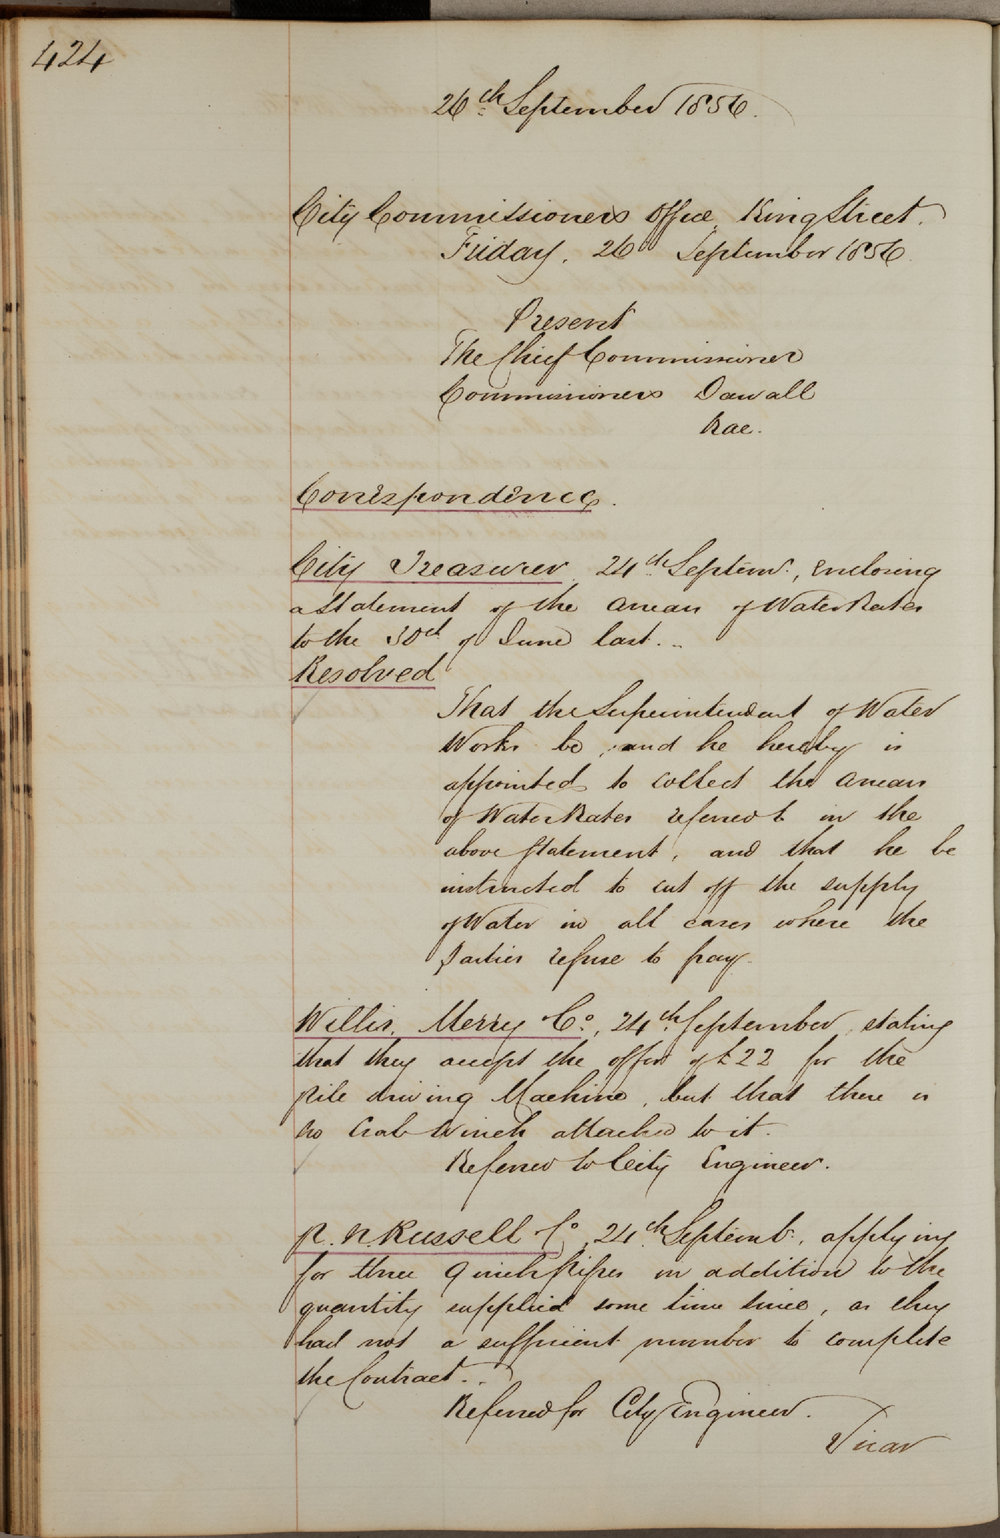 424
26th September 1856.
City Commissioners Office, King Street.
Friday, 26 September 1856.
Present
The Chief Commissioner
Commissioners Darvall
Rae.
Correspondence.
City Treasurer, 24th Septem., enclosing
a Statement of the arrears of Water Rates
to the 30th of June last.
Resolved
That the Superintendent of Water
Works be, and he hereby is
appointed to collect the arrears
of Water Rates referred to in the
above statement, and that he be
instructed to cut off the supply
of Water in all cases where the
Parties refuse to pay.
Willis, Merry & Co., 24th September, stating
that they accept the offer of £22 for the
pile driving Machine, but that there is
no Crab winch attached to it.
Referred to City Engineer.
P. N. Russell & Co, 24th Septemb., applying
for three 9 inch pipes in addition to the
quantity supplied some time since, as they
had not a sufficient number to complete
the Contract.
Referred for City Engineer.